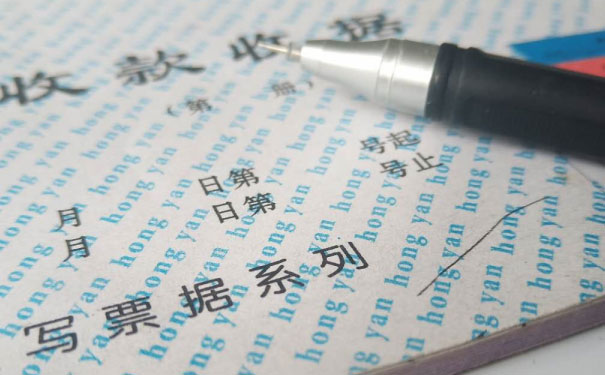 收款收据
(第 册)
月 日第 号起
月 日第 号止
写票据系列
hong yan hong yan hong yan hong yan